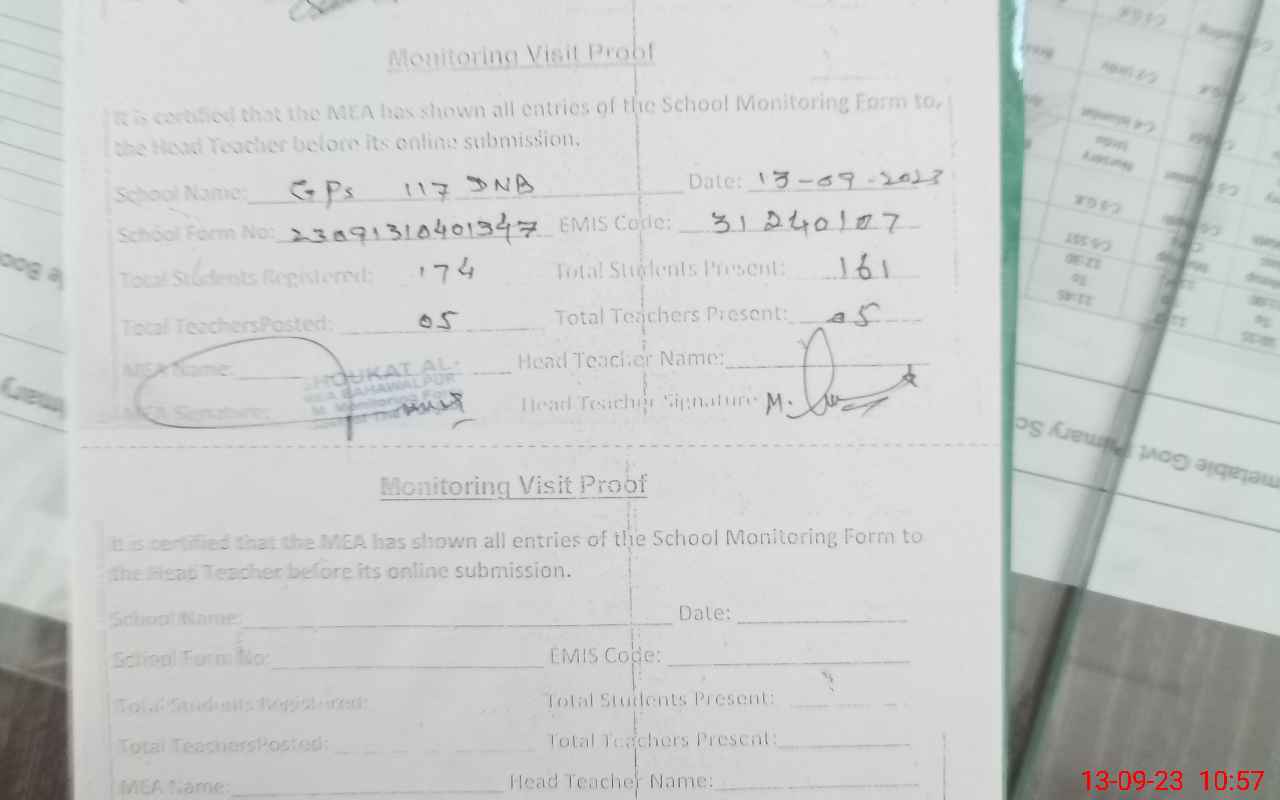 Monitoring Visit Proof
It is certified that the MEA has shown all entries of the School Monitoring Form to,
the Head Teacher before its online submission.
School Name: GPS 117 DNB Date: 13-09-2023
School Form No: 23091310401347 EMIS Code: 31240107
Total Students Registered: 174 Total Students Present: 161
Total TeachersPosted: 05 Total Teachers Present: 05
MEA Name: HOUKAT AL Head Teacher Name:
MEA BAHAWALPUR
MEA Signature: Head Teacher Signature M.
Monitoring Visit Proof
It is certified that the MEA has shown all entries of the School Monitoring Form to
the Head Teacher before its online submission.
School Name: Date:
School Form No: EMIS Code:
Total Students Registered: Total Students Present:
Total TeachersPosted: Total Teachers Present:
MEA Name: Head Teacher Name:
metable Govt Primary Sc
13-09-23 10:57